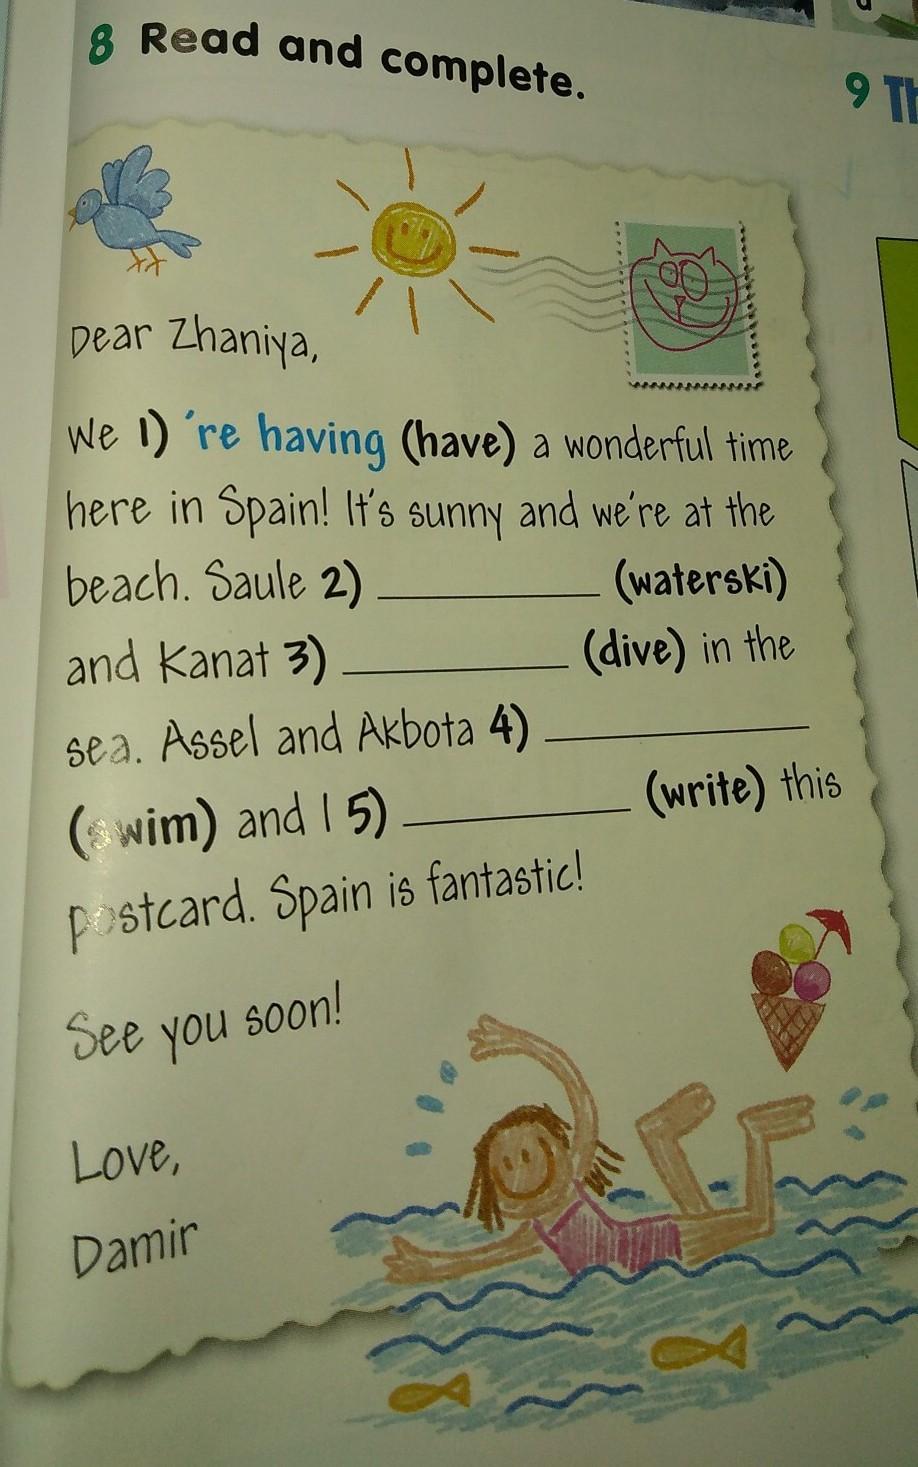 8 Read and complete.
9 Th
Dear Zhaniya,
We 1) 're having (have) a wonderful time
here in Spain! It's sunny and we're at the
beach. Saule 2) __________ (waterski)
and Kanat 3) __________ (dive) in the
sea. Assel and Akbota 4) __________
(swim) and I 5) __________ (write) this
postcard. Spain is fantastic!
See you soon!
Love,
Damir